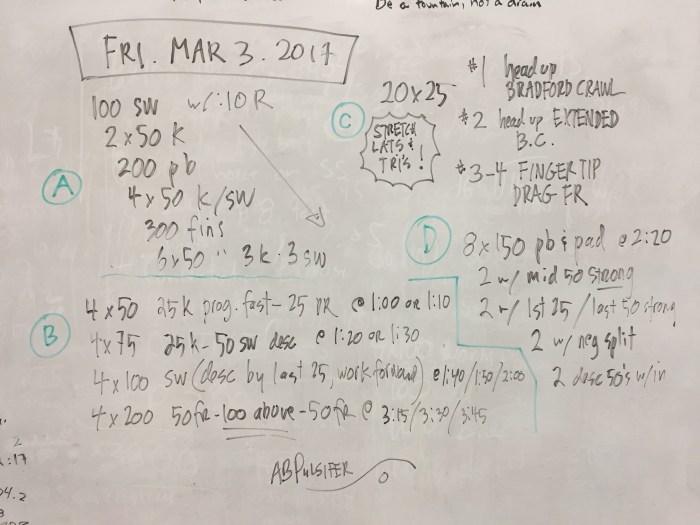 Be a fountain, not a drain
FRI. MAR 3. 2017
100 SW w/:10 R
2x50 k
200 pb
A
4x50 k/sw
300 fins
6x50 " 3k.3sw
C
20x25
STRETCH
LATS &
TRI'S!
#1 head up
BRADFORD CRAWL
#2 head up EXTENDED
B.C.
#3-4 FINGERTIP
DRAG FR
B
4x50 25k prog. fast-25 DR @ 1:00 OR 1:10
4x75 25k-50 sw desc @ 1:20 OR 1:30
4x100 SW (desc by last 25, work forward) @ 1:40/1:50/2:00
4x200 50fr-100 above-50fr @ 3:15/3:30/3:45
D
8x150 pb & pad @ 2:20
2 w/ mid 50 strong
2 w/ 1st 25/last 50 strong
2 w/ neg split
2 desc 50's w/in
ABPULSIFER
2
:17
04.2